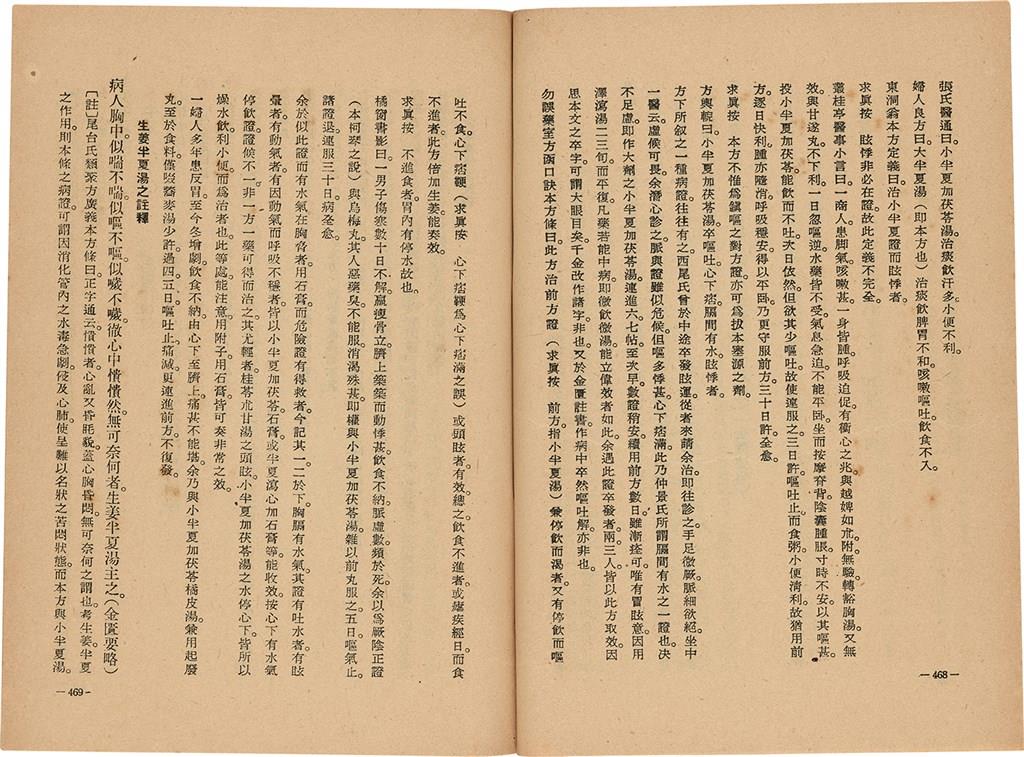 張氏醫通曰。小半夏加茯苓湯治痰飲汗多。小便不利。
婦人良方曰。大半夏湯（卽本方也）治痰飲脾胃不和。咳嗽嘔吐。飲食不入。
東洞翁本方定義曰。治小半夏證而眩悸者。
求眞按　眩悸非必在證。故此定義不完全。
叢桂亭醫事小言曰。一商人患脚氣。咳嗽甚。一身皆腫。呼吸迫促。有衝心之兆。與越婢加朮附。無驗。轉豁胸湯。又無
效。與甘遂丸不下利。一日忽嘔逆。水藥皆不受。氣息急迫。不能平臥。坐而按摩脊背。陰囊腫脹。寸時不安。以其嘔甚。
投小半夏加茯苓。能飲而不吐。次日依然。但欲其少嘔吐。故使連服之。三日許。嘔吐止。而食粥。小便淸利。故猶用前
方。逐日快利。腫亦隨消。呼吸穩安。得以平臥。乃更守服前方三十日許全愈。
求眞按　本方不惟爲鎭嘔之對方證。亦可爲拔本塞源之劑。
方輿輗曰。小半夏加茯苓湯。卒嘔吐。心下痞。膈間有水。眩悸者。
方下所叙之一種病證。往往有之。西尾氏曾於中途卒發眩運。從者來請余治。卽往診之。手足微厥。脈細欲絕。坐中
一醫云。虛候可畏。余潛心診之。脈與證雖似危候。但嘔多悸甚。心下痞滿。此乃仲景氏所謂膈間有水之一證也。決
不足慮。卽作大劑之小半夏加茯苓湯。連進六七帖。至次早。數證稍安。續用前方數日。雖漸痊可。唯有冒眩意。因用
澤瀉湯二三旬而平復。凡藥若能中病。卽微飲微湯。能立偉效者如此。余遇此證卒發者兩三人。皆以此方取效。因
思本文之卒字。可謂大眼目矣。千金改作諸字。非也。又於金匱註書作病中卒然嘔吐解。亦非也。
勿誤藥室方函口訣本方條曰。此方治前方證（求眞按　前方。指小半夏湯）兼停飲而渴者。又有停飲而嘔
—468—
吐不食。心下痞鞕（求眞按　心下痞鞕爲心下痞滿之誤）或頭眩者有效。總之飲食不進者。或瘧疾經日而食
不進者。此方倍加生姜能奏效。
求眞按　不進食者。胃內有停水故也。
橘窗書影曰。一男子傷寒數十日不解。羸瘦骨立。臍上築築而動悸甚。飲食不納。脈虛數。頻於死。余以爲厥陰正證
（本柯琴之說）與烏梅丸。其人惡藥臭不能服。消渴殊甚。卽權與小半夏加茯苓湯。雜以前丸服之。五日嘔氣止。
諸證退。連服三十日。病全愈。
余於似此證而有水氣在胸脅者。用石膏。而危險證有得救者。今記其一二於下。胸膈有水氣。其證有吐水者。有眩
暈者。有動氣者。有因動氣而呼吸不穩者。皆以小半夏加茯苓石膏。或半夏瀉心加石膏等。能收效。按心下有水氣
停飲證。證候不一。非一方一藥可得而治之。其尤輕者。桂苓朮甘湯之頭眩。小半夏加茯苓湯之水停心下。皆所以
燥水飲利小便。而爲治者也。此等處能注意用附子。用石膏。皆可奏非常之效。
一婦人多年患反胃。至今冬增劇。飲食不納。由心下至臍上痛甚不能堪。余乃與小半夏加茯苓橘皮湯。兼用起廢
丸。至於食料。僅啜蕎麥湯少許。過四五日嘔吐止。痛減。更連進前方。不復發。
生姜半夏湯之註釋
病人胸中似喘不喘。似嘔不嘔。似噦不噦。徹心中憒憒然無可奈何者。生姜半夏湯主之。（金匱要略）
〔註〕尾台氏類聚方廣義本方條曰。正字通云。憒憒者。心亂。又昏眊貌。蓋心胸昏悶無可奈何之謂也。考生姜半夏
之作用。則本條之病證。可謂因消化管內之水毒急劇侵及心肺。使呈難以名狀之苦悶狀態。而本方與小半夏湯。
—469—